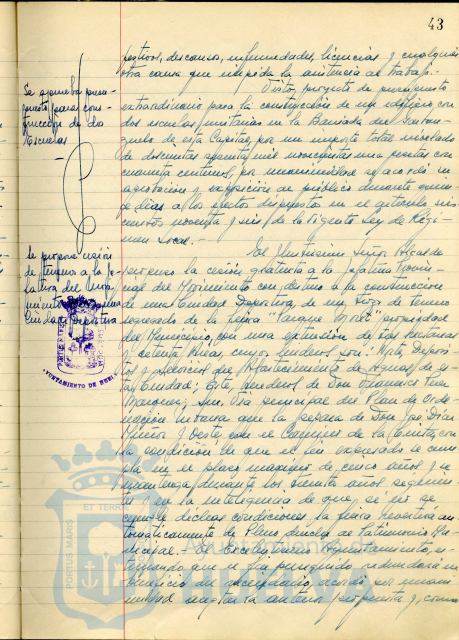 43
festivos, descanso, enfermedades, licencias y cualquier
otra causa que impida la asistencia al trabajo.-
Se aprueba presu-
puesto para cons-
trucción de dos
Escuelas
Visto, proyecto de presupuesto
extraordinario para la construcción de un edificio con
dos escuelas unitarias en la Barriada del
de esta Capital, por un importe total
de doscientas mil novecientas una pesetas con
cuarenta céntimos, por unanimidad se acordó su
aprobación y exposición al público durante quin-
ce días a los efectos dispuestos en el artículo seis
cientos noventa y seis de la vigente Ley de Régi-
men Local.-
Se propone cesión
de terreno a la Je-
fatura del Movi-
miento para una
Ciudad Deportiva
El Ilustrísimo Señor Alcalde
propone la cesión gratuita a la Jefatura Provin-
cial del Movimiento con destino a la construcción
de una Ciudad Deportiva, de un trozo de terreno
segregado de la finca "Parque Moret" propiedad
del Municipio, con una extensión de tres hectáreas
y setenta áreas, cuyos linderos son: Norte, Depósi-
tos y del Abastecimiento de Aguas de es-
ta Ciudad; Este, herederos de Don Francisco
Sur, Vía principal del Plan de Orde-
nación Urbana que la separa de Don José Díaz
y Oeste, con el Campus de la con
la condición de que el fin expresado se cum-
pla en el plazo máximo de cinco años y se
mantenga durante los treinta años siguien-
tes y en la inteligencia de que, si no se
cumple dichas condiciones la finca revertirá au-
tomáticamente de pleno derecho al Patrimonio Mu-
nicipal.- El Excelentísimo Ayuntamiento, es-
timando que el fin perseguido redundará en
beneficio del vecindario, acordó por unani-
midad aceptar la anterior propuesta y, como
PORTUS MARIS
ET TERRAE
AYUNTAMIENTO DE HUELVA